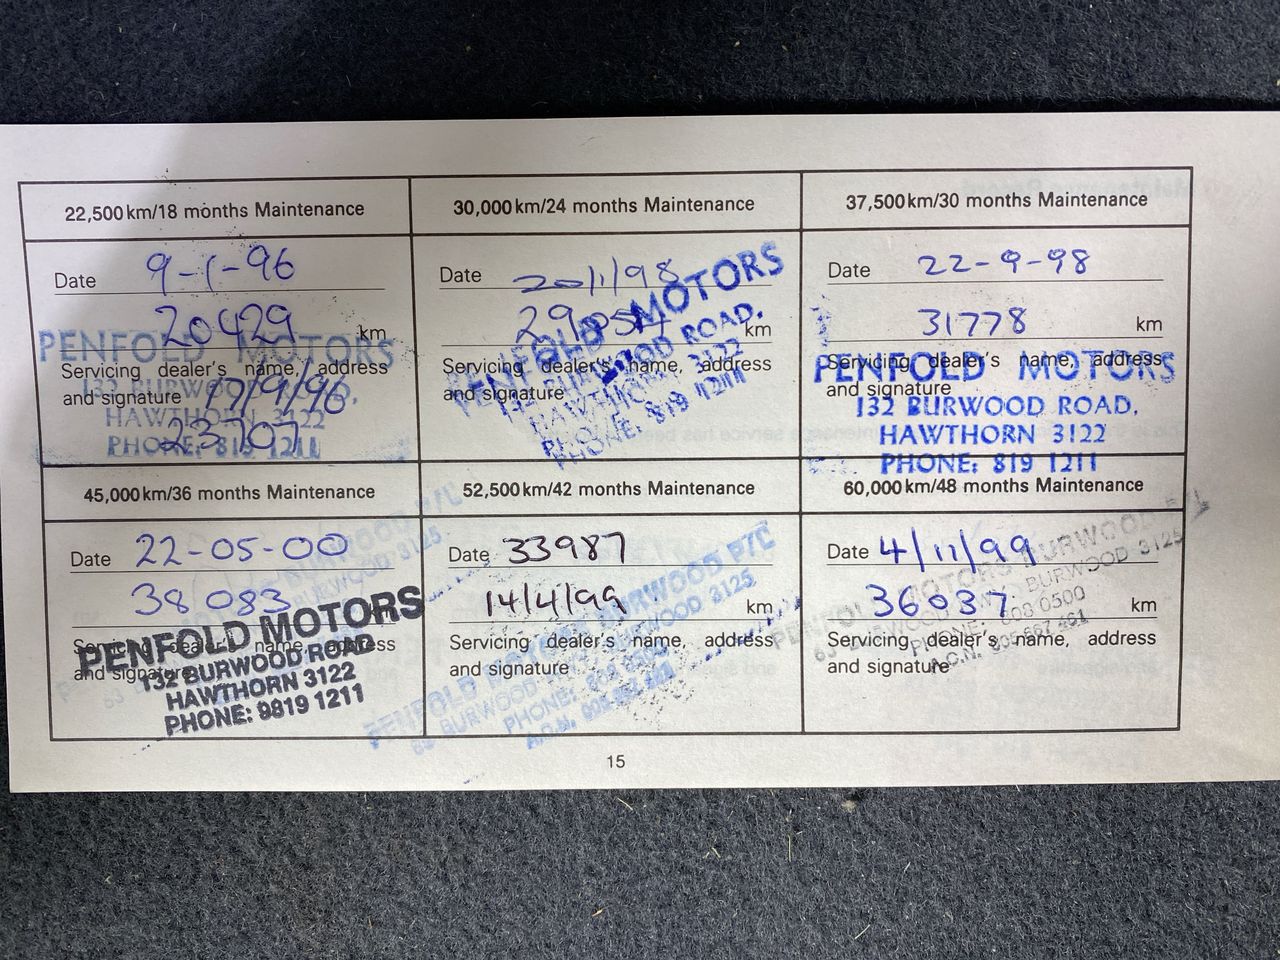 22,500 km/18 months Maintenance
Date 9-1-96
20429 km
PENFOLD MOTORS
Servicing dealer's name, address
and signature 17/9/96
132 BURWOOD ROAD,
HAWTHORN 3122
23707
PHONE: 819 1211
30,000 km/24 months Maintenance
Date 20/1/98
km
Servicing dealer's name, address
and signature
PENFOLD MOTORS
132 BURWOOD ROAD,
HAWTHORN 3122
PHONE: 819 1211
37,500 km/30 months Maintenance
Date 22-9-98
31778 km
Servicing dealer's name, address
and signature
PENFOLD MOTORS
132 BURWOOD ROAD,
HAWTHORN 3122
PHONE: 819 1211
45,000 km/36 months Maintenance
Date 22-05-00
38 083
Servicing dealer's name, address
and signature
PENFOLD MOTORS
132 BURWOOD ROAD
HAWTHORN 3122
PHONE: 9819 1211
52,500 km/42 months Maintenance
Date 33987
14/4/99 km
Servicing dealer's name, address
and signature
PENFOLD MOTORS BURWOOD P/L
BURWOOD 3125
PHONE:
A.C.N.
60,000 km/48 months Maintenance
Date 4/11/99
36037 km
Servicing dealer's name, address
and signature
PENFOLD MOTORS BURWOOD P/L
BURWOOD 3125
PHONE: 808 0500
A.C.N. 005
15